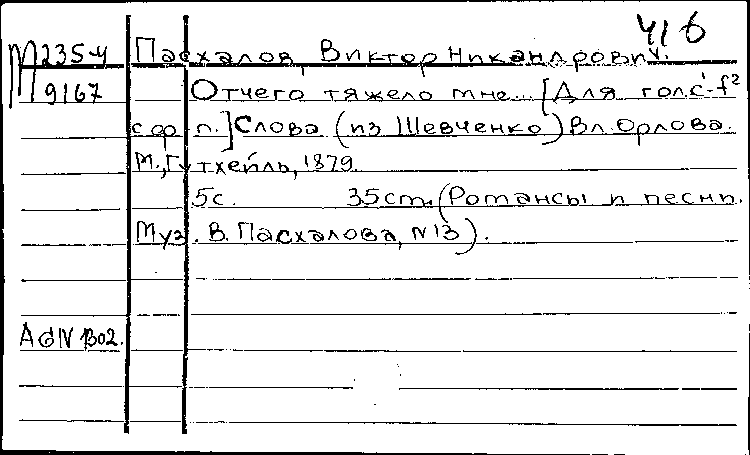 416
М 235-4 Пасхалов, Виктор Никандрович.
9167 Отчего тяжело мне... [Для гол. c'-f²
с ф.-п.] Слова (из Шевченко) Вл. Орлова.
М., Гутхейль, 1879.
5с. 35см. (Романсы и песни.
Муз. В. Пасхалова, №13).